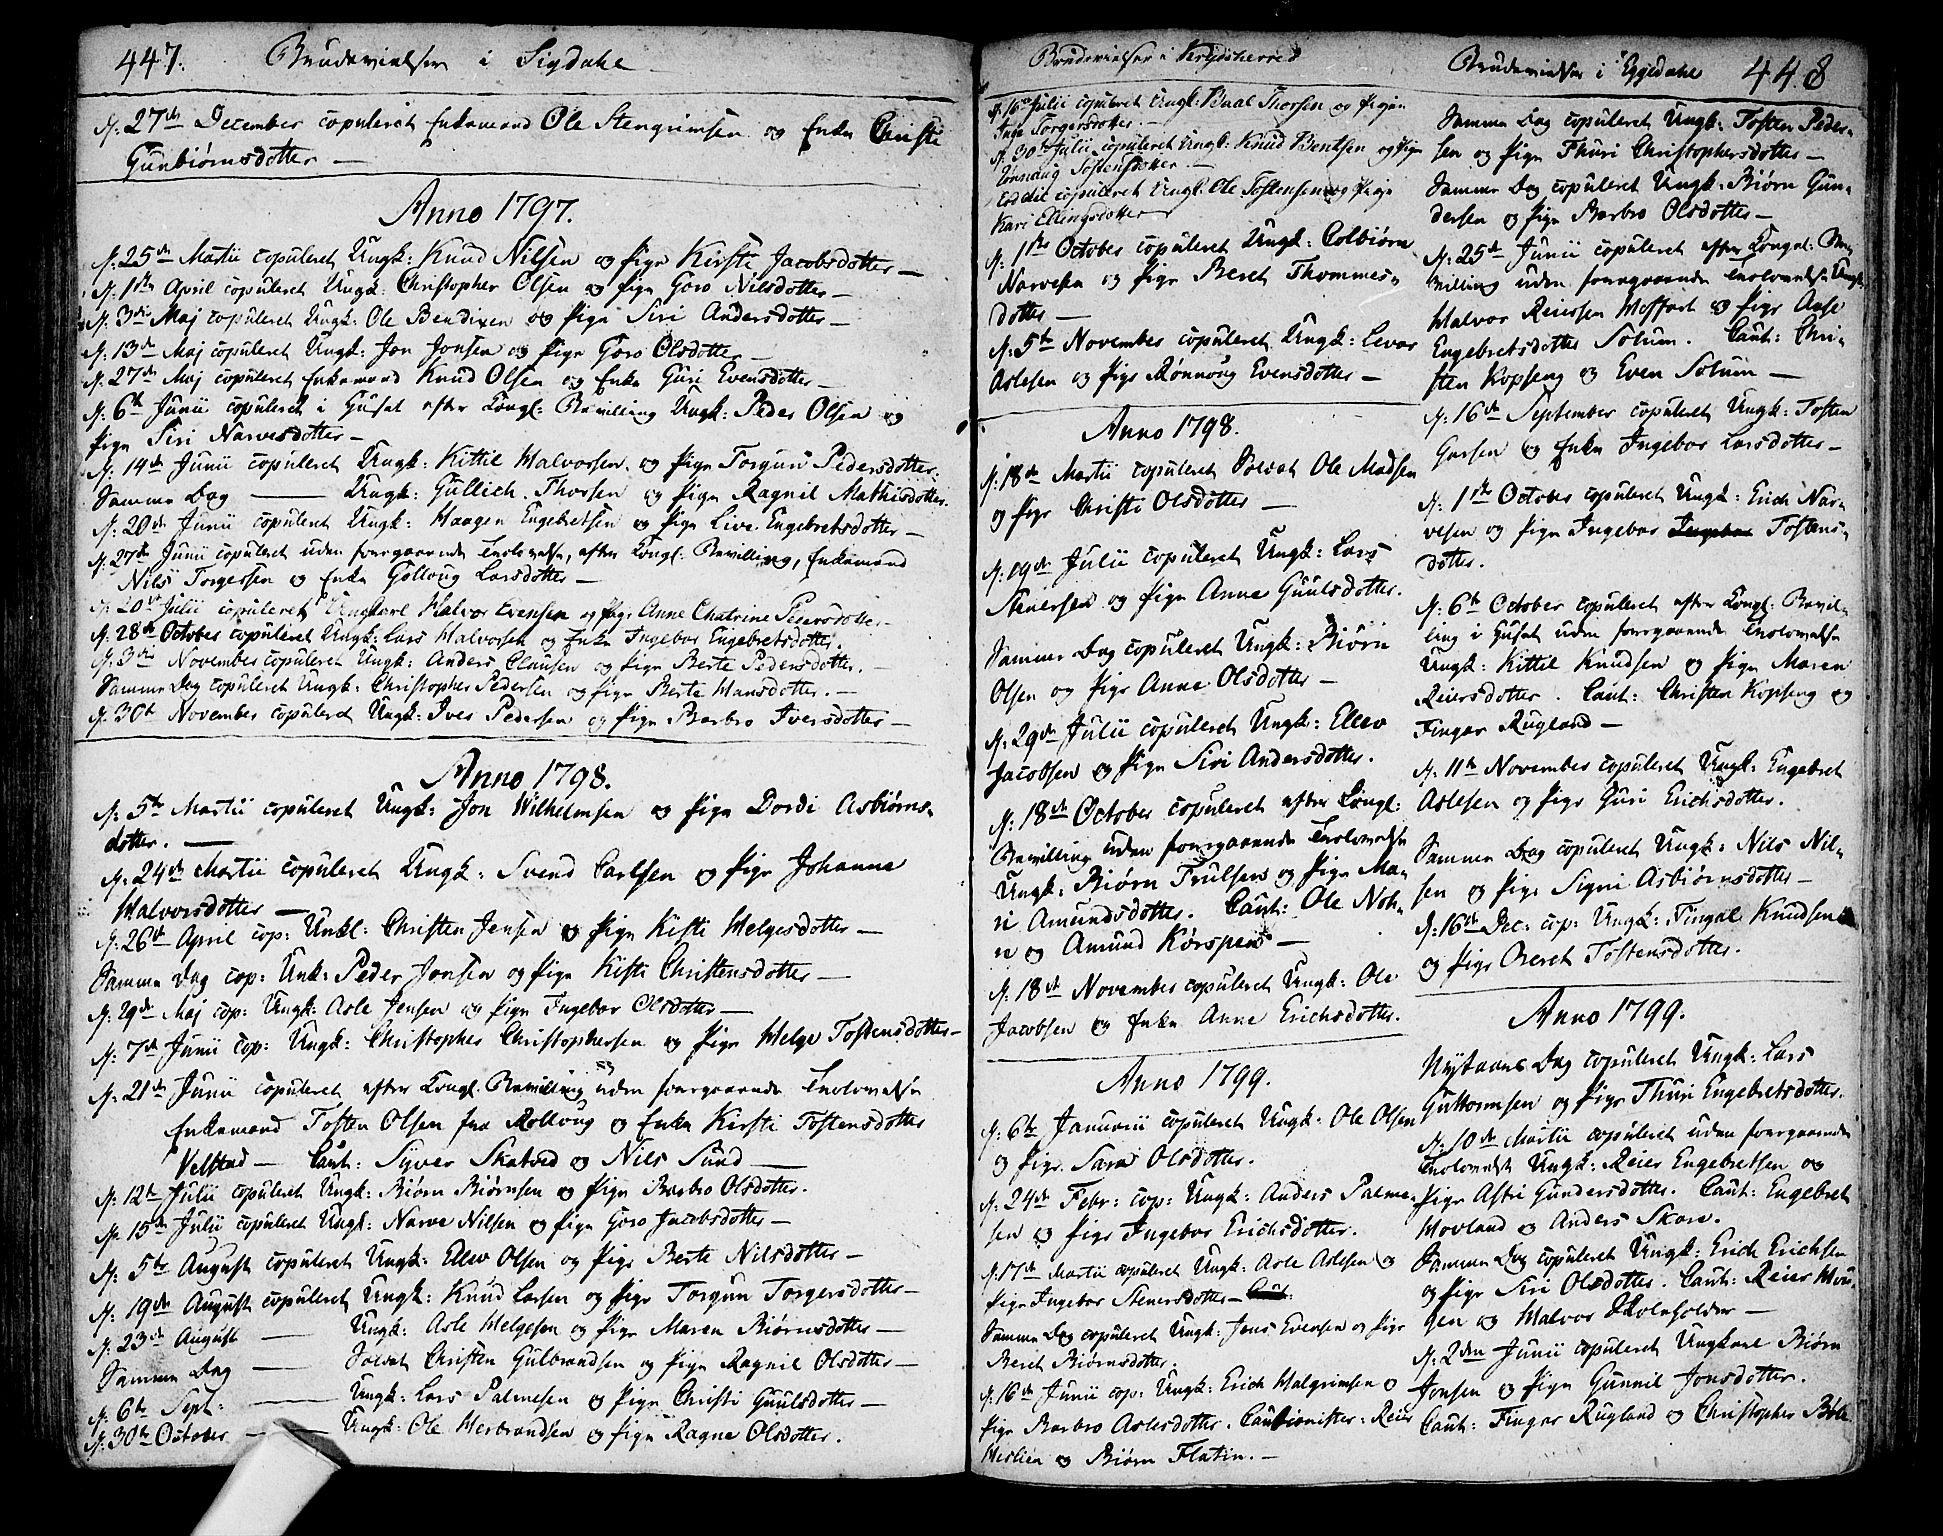 447. Brudevielser i Sigdahl
d: 27de December copuleret Enkemand Ole Stengrimsen og Enke Christi
Gunbiørnsdotter —
Anno 1797.
d: 25de Martii copuleret Ungk: Knud Nilsen og Pige Kirsti Jacobsdotter —
d: 1ste April copuleret Ungk: Christopher Olsen og Pige Goro Nilsdotter —
d: 3die Maj copuleret Ungk: Ole Bendixen og Pige Siri Andersdotter —
d: 13de Maj copuleret Ungk: Jon Jonsen og Pige Goro Olsdotter —
d: 27de Maj copuleret Enkemand Knud Olsen og Enke Guri Evensdotter —
d: 6te Junii copuleret i Huset efter Kongl: Bevilling Ungk: Peder Olsen og
Pige Siri Narvesdotter —
d: 14de Junii copuleret Ungk: Kittil Halvorsen og Pige Torgun Pedersdotter.
Samme Dag — Ungk: Gullich Thorsen og Pige Ragnil Mathisdotter.
d: 20de Junii copuleret Ungk: Haagen Engebretsen og Pige Live Engebretsdotter —
d: 27de Junii copuleret uden foregaaende Trolovelse, efter Kongl: Bevilling, Enkemand
Nils Torgersen og Enke Gollaug Larsdotter —
d: 20de Julii copuleret Ungkarl Halvor Evensen og Pige Anne Chatrine Pedersdotter —
d: 28de October copuleret Ungk: Lars Halvorsen og Enke Ingebor Engebretsdotter.
d: 3die November copuleret Ungk: Anders Clausen og Pige Berte Pedersdotter. —
Samme Dag copuleret Ungk: Christopher Pedersen og Pige Berte Hansdotter. —
d: 30te November copuleret Ungk: Iver Pedersen og Pige Barbro Iversdotter —
Anno 1798.
d: 5te Martii copuleret Ungk: Jon Wilhelmsen og Pige Dordi Asbiørns-
dotter. —
d: 24de Martii copuleret Ungk: Svend Carlsen og Pige Johanne
Halvorsdotter —
d: 26de April cop: Unkl: Christen Jensen og Pige Kisti Helgesdotter —
Samme Dag cop: Unk: Peder Jonsen og Pige Kisti Christensdotter —
d: 29de Maj cop: Ungk: Asle Jensen og Pige Ingebor Olsdotter —
d: 7de Junii cop: Ungk: Christopher Christophersen og Pige Helge Tostensdotter —
d: 21de Junii copuleret efter Kongl: Bevilling uden foregaaende Trolovelse
Enkemand Tosten Olsen fra Rollaug og Enke Kirsti Tostensdotter
Velstad — Caut: Syver Skatved og Nils Sund —
d: 12te Julii copuleret Ungk: Biørn Biørnsen og Pige Barbro Olsdotter.
d: 15de Julii copuleret Ungk: Narve Nilsen og Pige Goro Jacobsdotter —
d: 5te August copuleret Ungk: Ellev Olsen og Pige Berte Nilsdotter —
d: 19de August copuleret Ungk: Knud Larsen og Pige Torgun Torgersdotter —
d: 23de August — Ungk: Asle Helgesen og Pige Maren Biørnsdotter —
Samme Dag — Soldat Christen Gulbrandsen og Pige Ragnil Olsdotter —
d: 6te Sept: — Ungk: Lars Palmesen og Pige Christi Guulsdotter —
d: 30te October — Ungk: Ole Herbrandsen og Pige Ragne Olsdotter.
Brudevielser i Krydsherred
d: 16de Julii copuleret Ungk: Baal Thorsen og Pigen
Inge Torgersdotter. —
d: 30te Julii copuleret Ungk: Knud Bentsen og Pige
Rønnaug Tostensdotter. —
Eod: die copuleret Ungk: Ole Tostensen og Pige
Kari Ellingsdotter
d: 1ste October copuleret Ungk: Colbiørn
Narvesen og Pige Beret Thommes-
dotter —
d: 5te November copuleret Ungk: Levor
Aslesen og Pige Rønnoug Evensdotter —
Anno 1798.
d: 18de Martii copuleret Soldat Ole Madsen
og Pige Christi Olsdotter —
d: 19de Julii copuleret Ungk: Lars
Stenersen og Pige Anne Guulsdotter.
Samme Dag copuleret Ungk: Biørn
Olsen og Pige Anne Olsdotter —
d: 29de Julii copuleret Ungk: Ellev
Jacobsen og Pige Siri Andersdotter.
d: 18de October copuleret efter Kongl:
Bevilling uden foregaaende Trolovelse
Ungk: Biørn Trulsen og Pige Ma-
ri Amundsdotter. Caut: Ole Noh-
re og Amund Kørspen —
d: 18de November copuleret Ungk: Ole
Jacobsen og Enke Anne Erichsdotter.
Anno 1799.
d: 6te Januarii copuleret Ungk: Ole Olsen
og Pige Sara Olsdotter.
d: 24de Febr: cop: Ungk: Anders Palme-
sen og Pige Ingebor Erichsdotter.
d: 17de Martii copuleret Ungk: Asle Aslesen og
Pige Ingebor Stenersdotter —
Samme Dag copuleret Ungk: Jens Evensen og Pige
Beret Biørnsdotter.
d: 16de Junii cop: Ungk: Erich Halgrimsen og
Pige Barbro Aslesdotter. Cautionister: Reier
Herlien og Biørn Flatin. —
Brudevielser i Eggedahl 448
Samme Dag copuleret Ungk: Tosten Peder-
sen og Pige Thuri Christophersdotter —
Samme Dag copuleret Ungk: Biørn Gun-
dersen og Pige Barbro Olsdotter —
d: 25de Junii copuleret efter Kongel: Be-
villing uden foregaaende Trolovelse Ungk:
Halvor Reiersen Hoffart og Pige Aase
Engebretsdotter Solum. Caut: Chri-
sten Kopseng og Even Solum —
d: 16de September copuleret Ungk: Tosten
Larsen og Enke Ingebor Larsdotter —
d: 1ste October copuleret Ungk: Erich Nar-
vesen og Pige Ingebor Tostens-
dotter.
d: 6te October copuleret efter Kongl: Bevil-
ling i Huset uden foregaaende Trolovelse
Ungk: Kittil Knudsen og Pige Maren
Reiersdotter. Caut: Christen Kopseng og
Fingar Rugland —
d: 11te November copuleret Ungk: Engebret
Aslesen og Pige Guri Erichsdotter.
Samme Dag copuleret Ungk: Nils Nil-
sen og Pige Signi Asbiørnsdotter —
d: 16de Dec: cop: Ungk: Fingal Knudsen
og Pige Beret Tostensdotter.
Anno 1799.
Nytaars Dag copuleret Ungk: Lars
Guttormsen og Pige Thuri Engebretsdotter.
d: 10de Martii copuleret uden foregaaende
Trolovelse Ungk: Reier Engebretsen og
Pige Astri Gundersdotter. Caut: Engebret
Hovland og Anders Skare.
Samme Dag copuleret Ungk: Erich Erichsen
og Pige Siri Olsdotter. Caut: Reier Hau-
gen og Halvor Skoleholder —
d: 2den Junii copuleret Ungkarl Biørn
Jonsen og Pige Gunnil Jonsdotter.
Caut: Fingar Rugland og Christopher Bøle